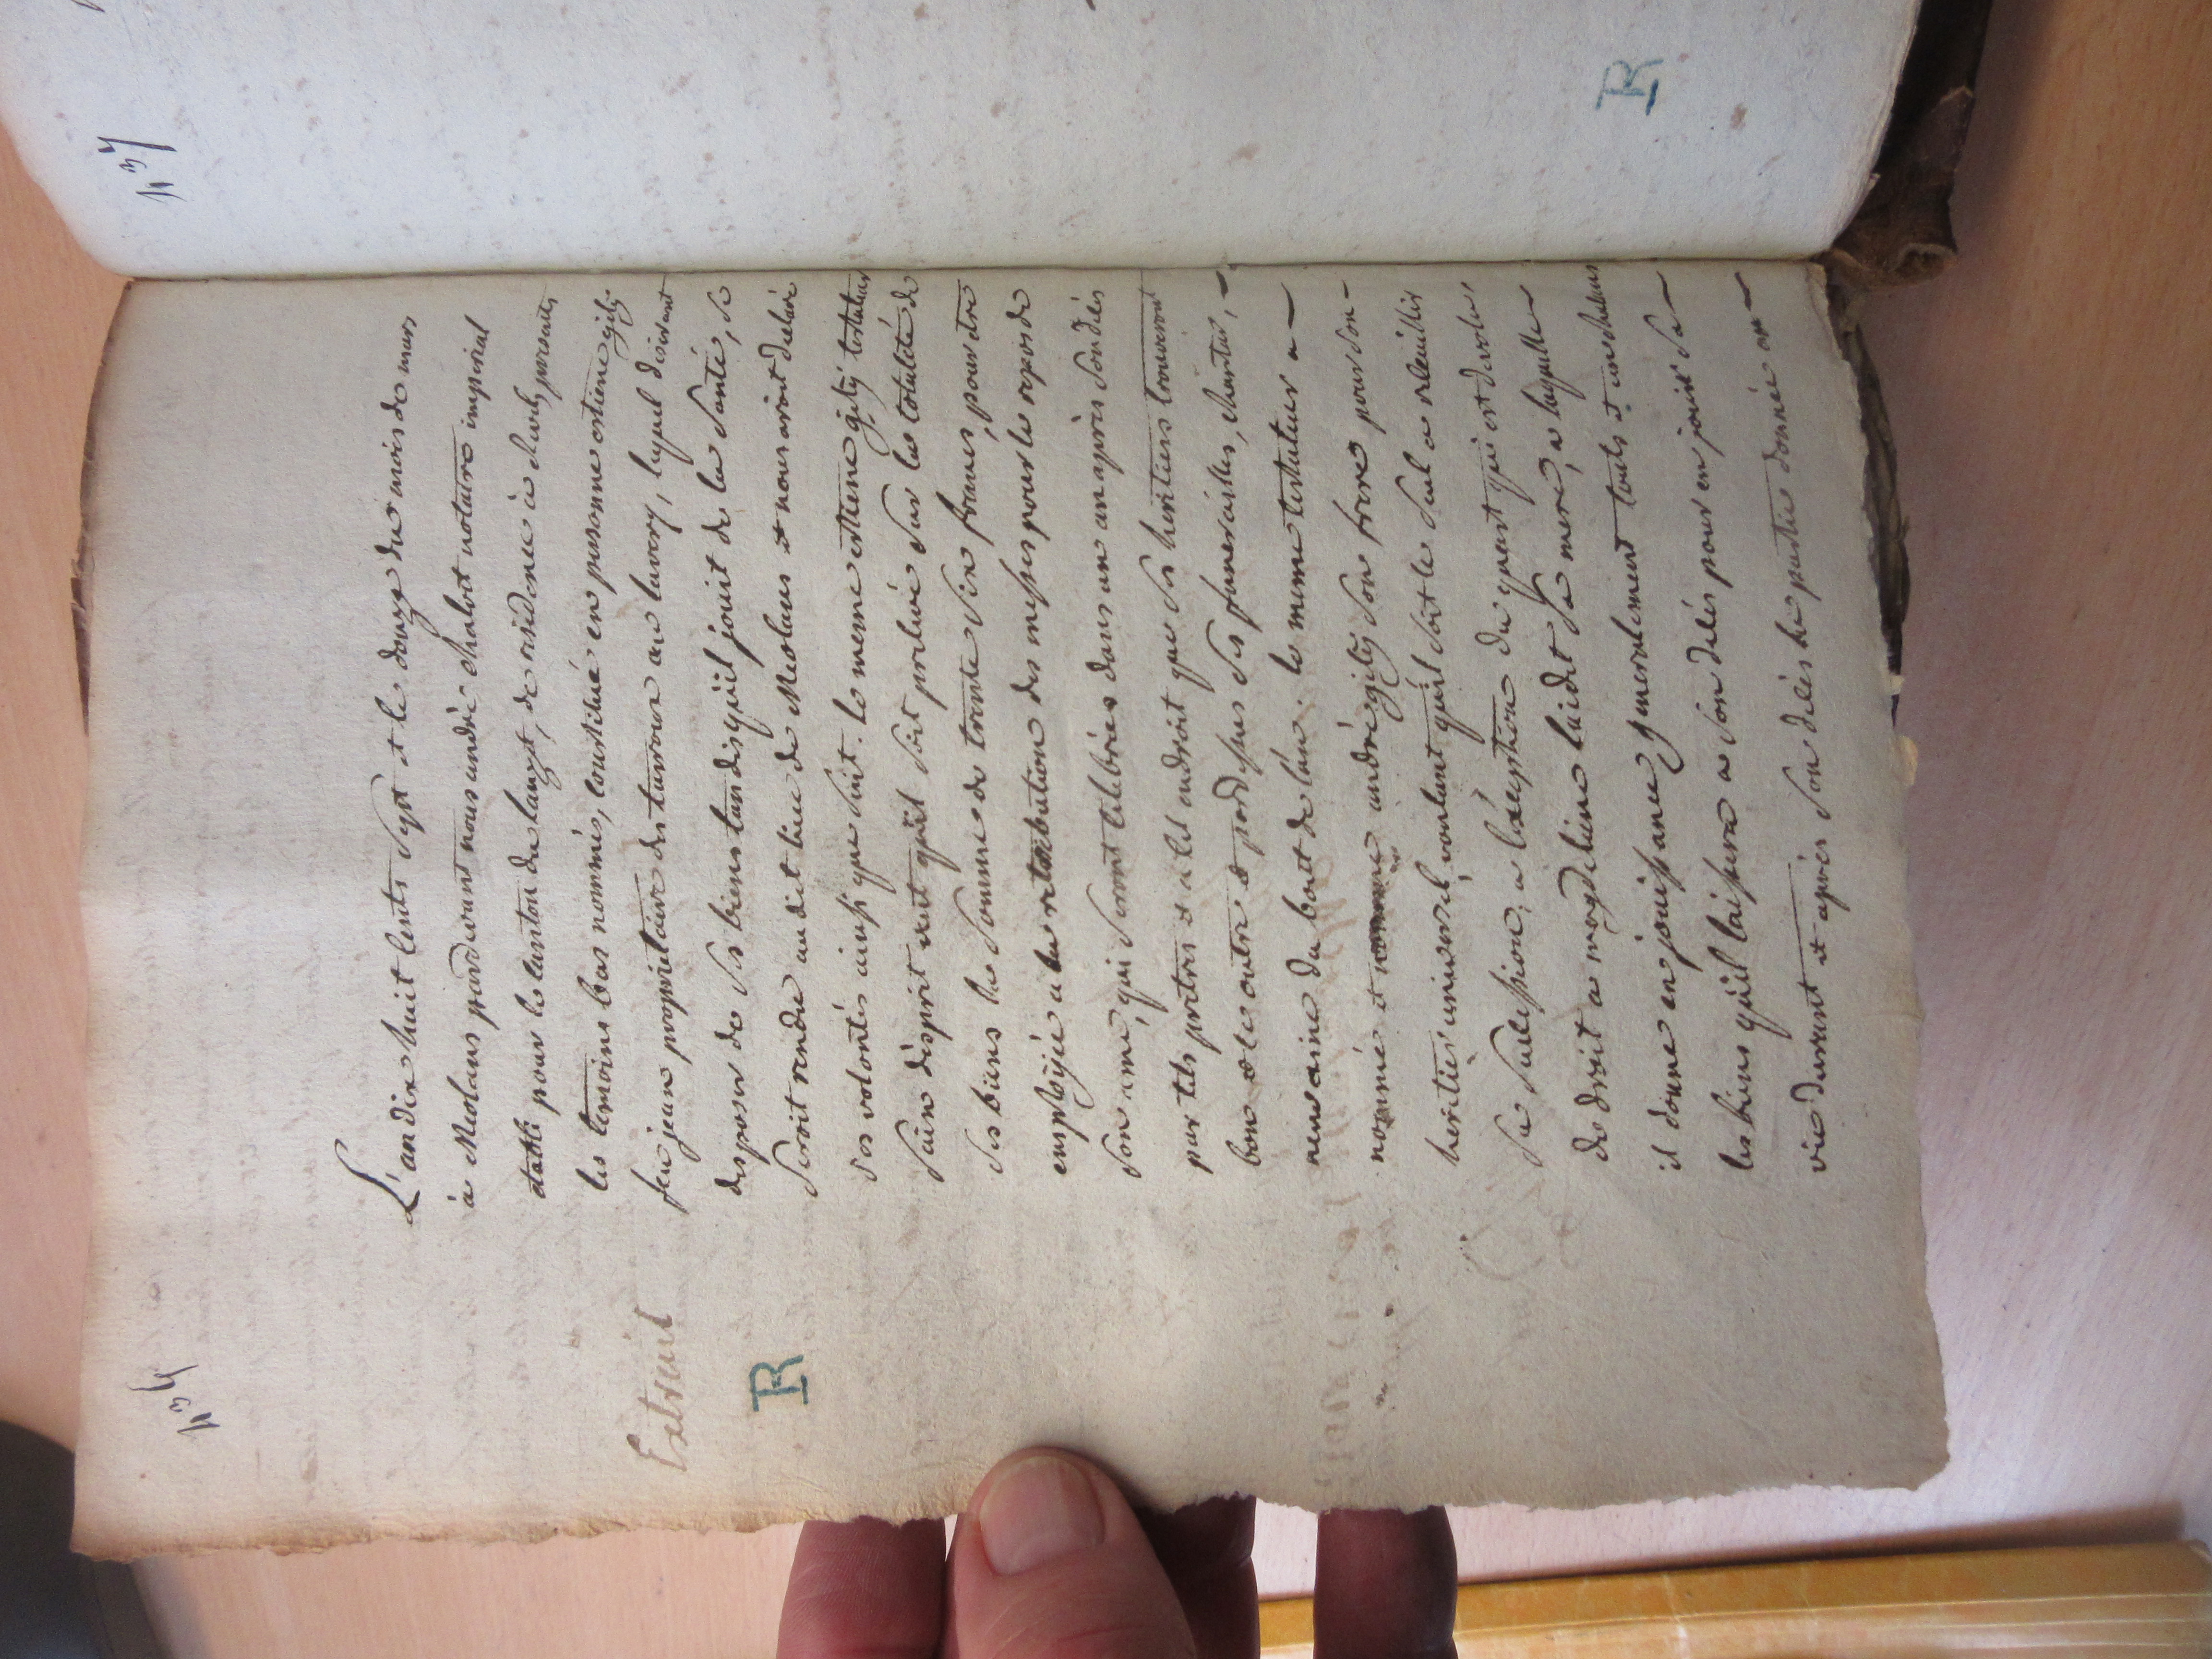 n.34
Extrait
R
L'an dix huit cents sept et le douze du mois de mars
à Meolans pardevant nous andré chabot notaire imperial
etabli pour le canton du lauzet, de residence à
les temoins bas nommés, constitué en personne estiene
feu jean proprietaire des au lavery, lequel disirant
disposer de ses biens tandisqu'il jouit de la santé, se
seroit rendu au dit lieu de Meolans et nous avoit declaré
ses volontés ainssi que suit. le meme estiene testateur
sain d'esprit veut qu'il soit prelevé sur la totalité de
ses biens la somme de trente six francs, pour etre
employée a la retribution des messes pour le repos de
son ame, qui seront celebrées dans un an après son dèès
par tels pretres et a tel endroit que ses heritiers trouveront
bon et ce outre et pardessus ses funerailles, chantar,
neuvaine du bout de l'an. le meme testateur a
nommé et nomme andré son frere pour son
heritier universel, voulant qu'il soit le seul a reccuillir
sa succession, a l'exception du quart qui est devolu,
de droit a magdeleine laidet sa mere, a laquelle
il donne en jouissance generalement touts et
les biens qu'il laissera a son dècès pour en jouir sa
vie durant et après son dècès la partie donnée en
n.37
R